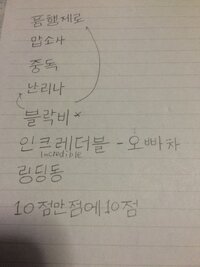 품행제로
맙소사
중독
난리나
블락비 *
인크레더블 - 오빠차
Incredible
링딩동
10점만점에 10점